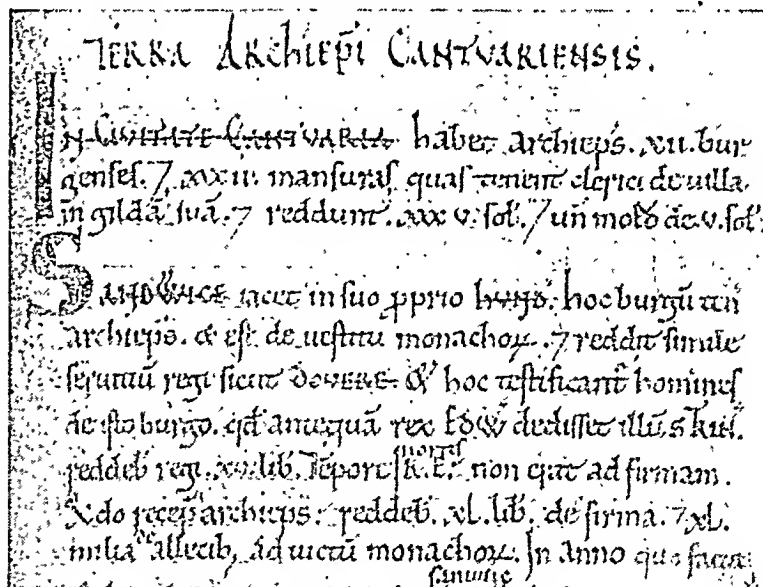 TERRA ARCHIEPI CANTVARIENSIS.
IN CIVITATE CANTVARIA habet archieps. xii. bur
genses. 7 xxxii. mansuras quas tenent clerici de uilla
in gildā suā. 7 reddunt. xxxv. sol. 7 un mold de. v. sol.
SANDWICE iacet in suo pprio HUND. hoc burgū ten
archieps. & est de uestitu monachoꝝ. 7 reddit simile
seruitiū regi sicut DOVERE. & hoc testificant homines
de isto burgo. qd antequā rex EDW dedisset illū. S. Trin.
reddeb regi. xv. lib. Tēpore mortis R.E. non erat ad firmam.
Qdo recep archieps. reddeb. xl. lib. de firma. 7 xl.
milia de allecib ad uictū monachoꝝ. In anno quo facta